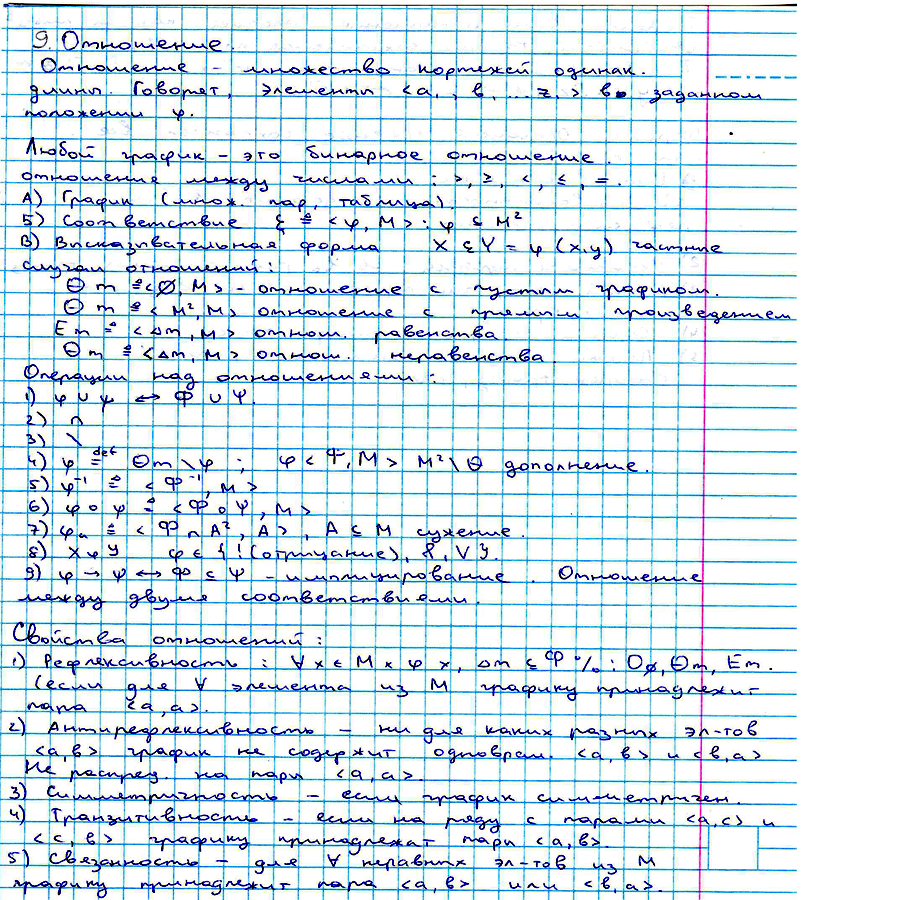 9. Отношение.
Отношение - множество кортежей одинак.
длины. Говорят, элементы <a, , в, ... z, > в заданном
положении φ.
Любой график - это бинарное отношение.
отношение между числами : >, ≥, <, ≤, =.
А) График (множ. пар, таблица).
Б) Соответствие ξ ≝ <φ, M> : φ ⊆ M²
В) Висказивательная форма X ξ Y = φ (x,y) частние
случаи отношений :
Θm ≝ <∅, M> - отношение с пустым графиком.
Θm ≝ < M², M> отношение с прямим произведением
Em ≝ <Δm, M> отнош. равенства
Θm ≝ <Δm, M> отнош. неравенства.
Операции над отношениями :
1) φ ∪ ψ ↔ Φ ∪ Ψ.
2) ∩
3) \
4) φ ≝ Θm \ φ ; φ < Ψ, M > M² \ Θ дополнение.
5) φ⁻¹ ≝ < Φ⁻¹, M >
6) φ ∘ ψ ≝ < Φ ∘ Ψ, M >
7) φₐ ≝ < Φ ∩ A², A > , A ⊆ M сужение.
8) X φ У φ ∈ { ! (отрицание), &, V }.
9) φ → ψ ↔ Φ ⊆ Ψ - имплицирование. Отношение
между двумя соответствиями.
Свойства отношений :
1) Рефлексивность : ∀ x ∈ M x φ x, Δm ⊆ Φ % : O∅, Θm, Em.
(если для ∀ элемента из M графику принадлежит
пара <a, a>.
2) Антирефлексивность - ни для каких разних эл-тов
<a, в> график не содержит одноврем. <a, в> и <в, a>
Не распред. на пари <a, a>.
3) Симметричность - если график симметричен.
4) Транзитивность - если на ряду с парами <a, c> и
<c, в> графику принадлежат пари <a, в>.
5) Связанность - для ∀ неравних эл-тов из M
графику принадлежит пара <a, в> или <в, a>.